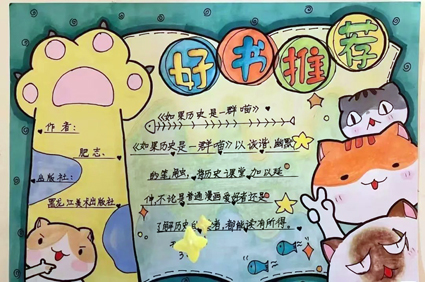 好书推荐
作者：
肥志。
出版社：
黑龙江美术出版社
《如果历史是一群喵》
《如果历史是一群喵》以诙谐，幽默
的笔触，将历史课堂，加以延
伸，不论是普通漫画爱好者还是
了解历史的 者，都能读有所得。